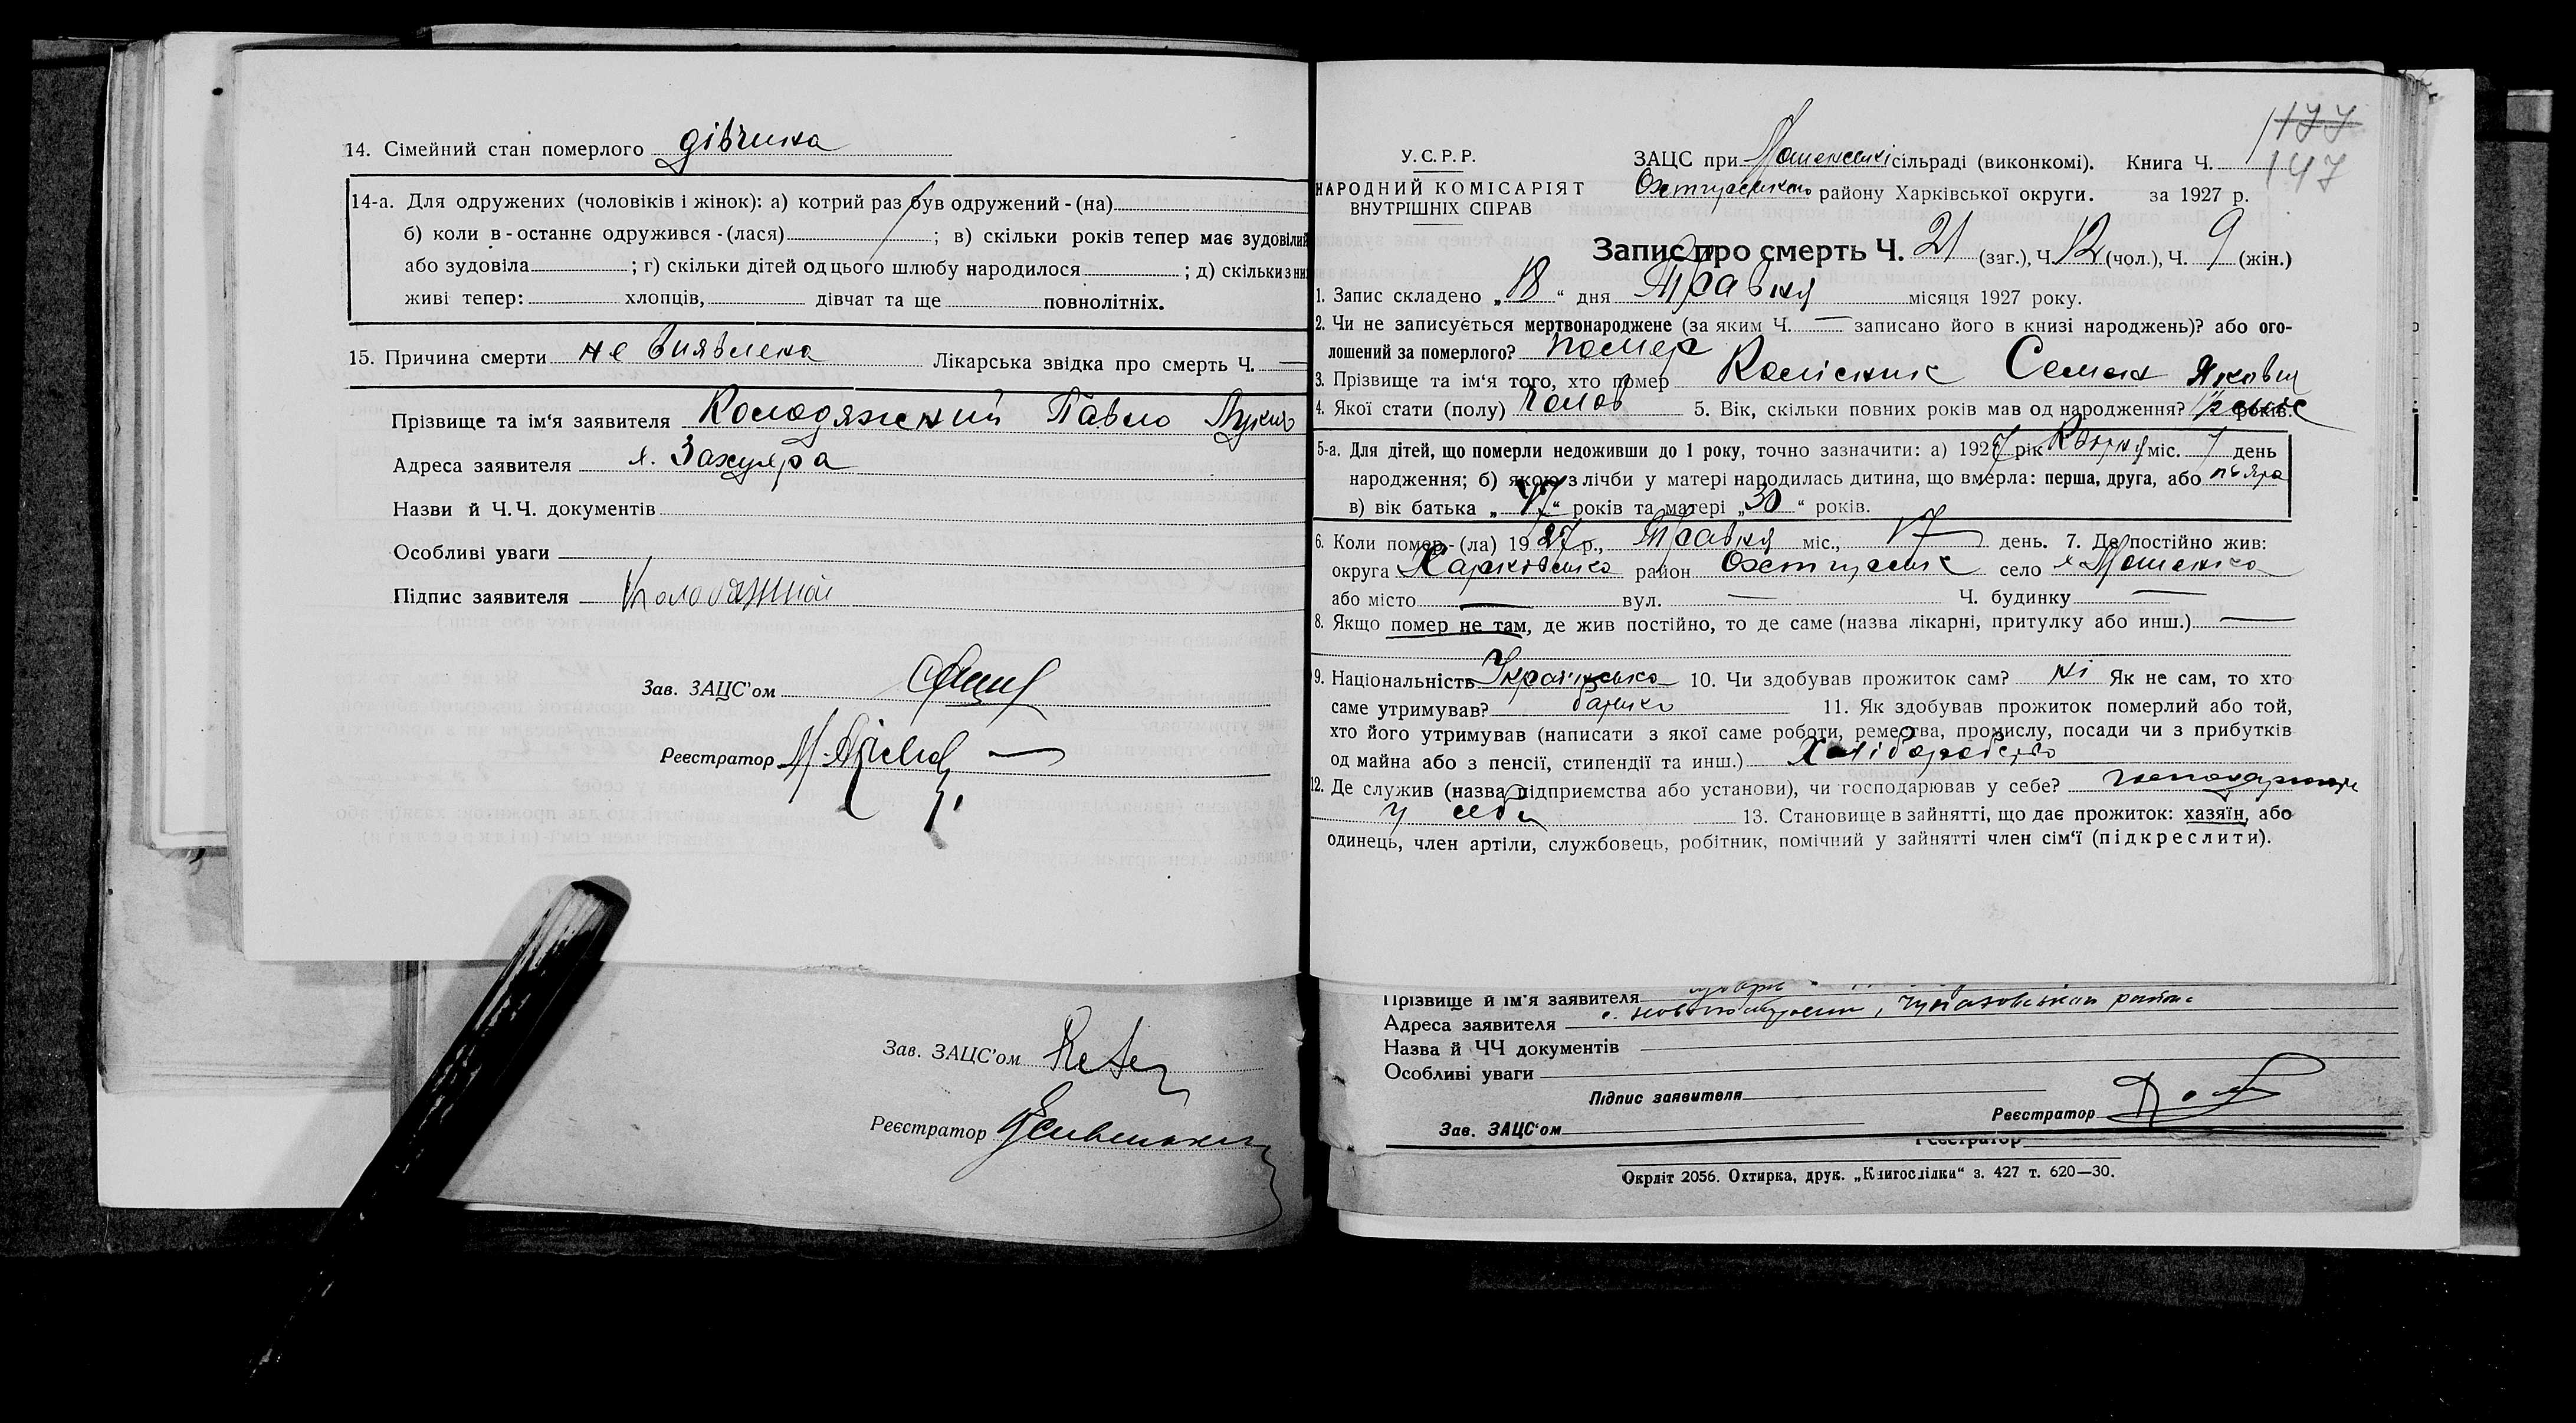 14. Сімейний стан померлого дівчина
14-а. Для одружених (чоловіків і жінок): а) котрий раз був одружений - (на)
б) коли в - останнє одружився - (лася) ; в) скільки років тепер має зудовілий
або зудовіла ; г) скільки дітей од цього шлюбу народилося ; д) скільки з них
живі тепер: хлопців, дівчат та ще повнолітніх.
15. Причина смерти не виявлена Лікарська звідка про смерть Ч. —
Прізвище та ім'я заявителя Колодяжний Павло
Адреса заявителя х.
Назви й Ч.Ч. документів
Особливі уваги
Підпис заявителя Колодяжний
Зав. ЗАЦС'ом
Реєстратор
Зав. ЗАЦС'ом
Реєстратор
177
147
У.С.Р.Р.
НАРОДНИЙ КОМІСАРІЯТ
ВНУТРІШНІХ СПРАВ
ЗАЦС при сільраді (виконкомі). Книга Ч.
Охтирського району Харківської округи. за 1927 р.
Запис про смерть Ч. 21 (заг.), Ч. 12 (чол.), Ч. 9 (жін.)
1. Запис складено „18“ дня Травня місяця 1927 року.
2. Чи не записується мертвонароджене (за яким Ч. — записано його в книзі народжень)? або ого-
лошений за померлого? помер
3. Прізвище та ім'я того, хто помер Колісник Семен Якович
4. Якої стати (полу) чолов 5. Вік, скільки повних років мав од народження? років.
5-а. Для дітей, що померли недоживши до 1 року, точно зазначити: а) 1927 рік Квітня міс. 7 день
народження; б) якою з лічби у матері народилась дитина, що вмерла: перша, друга, або
в) вік батька „ “ років та матері „30“ років.
6. Коли помер - (ла) 1927 р., Травня міс., 17 день. 7. Де постійно жив:
округа Харківська район Охтирськ село
або місто — вул. — Ч. будинку —
8. Якщо помер не там, де жив постійно, то де саме (назва лікарні, притулку або инш.) —
9. Національність Українська 10. Чи здобував прожиток сам? ні Як не сам, то хто
саме утримував? батько 11. Як здобував прожиток померлий або той,
хто його утримував (написати з якої саме роботи, ремества, промислу, посади чи з прибутків
од майна або з пенсії, стипендії та инш.) Хліборобство
12. Де служив (назва підприємства або установи), чи господарював у себе?
у себе 13. Становище в зайнятті, що дає прожиток: хазяїн, або
одинець, член артіли, службовець, робітник, помічний у зайнятті член сім'ї (підкреслити).
Прізвище й ім'я заявителя
Адреса заявителя
Назва й ЧЧ документів
Особливі уваги
Підпис заявителя
Реєстратор
Зав. ЗАЦС'ом
Реєстратор
Окрліт 2056. Охтирка, друк. „Книгоспілки“ з. 427 т. 620—30.